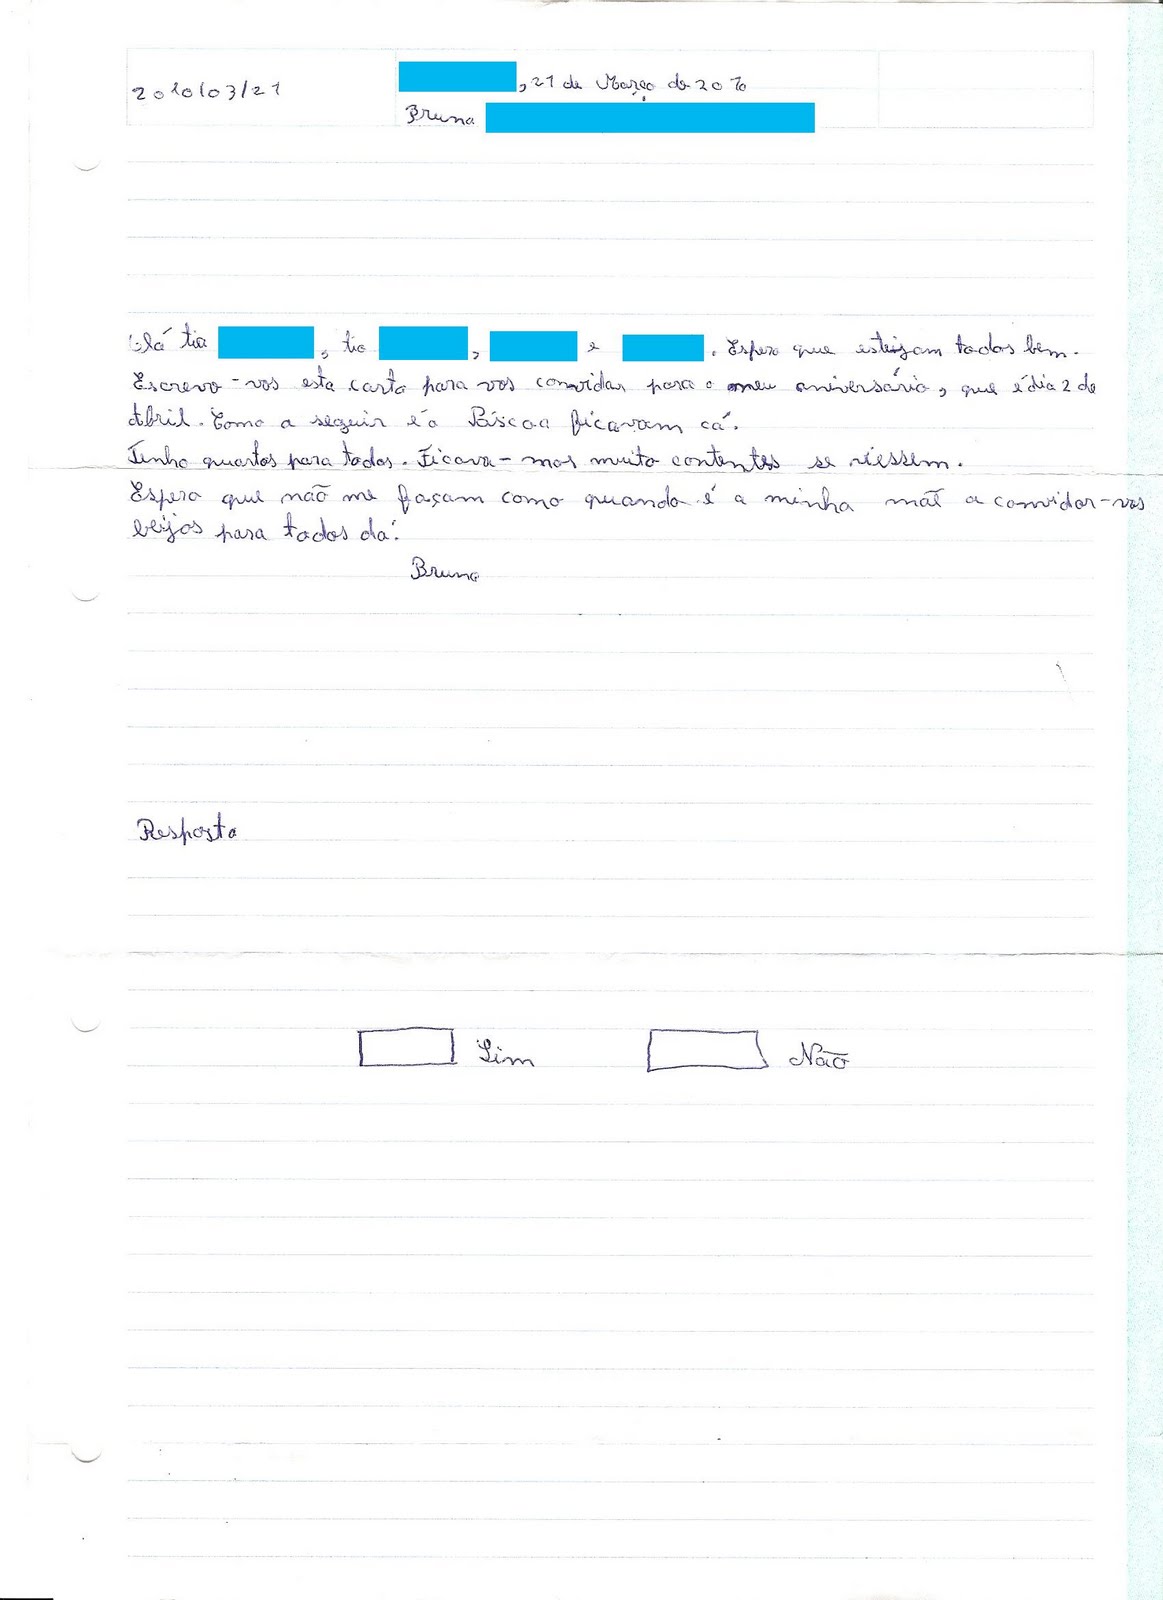 2010/03/21
, 21 de Março de 2010
Bruna
Olá tia , tio , e . Espero que estejam todos bem.
Escrevo-vos esta carta para vos convidar para o meu aniversário, que é dia 2 de
Abril. Como a seguir é a Páscoa ficavam cá.
Tenho quartos para todos. Ficava-mos muito contentes se viessem.
Espero que não me façam como quando é a minha mãe a convidar-vos
beijos para todos daí.
Bruna
Resposta
Sim Não